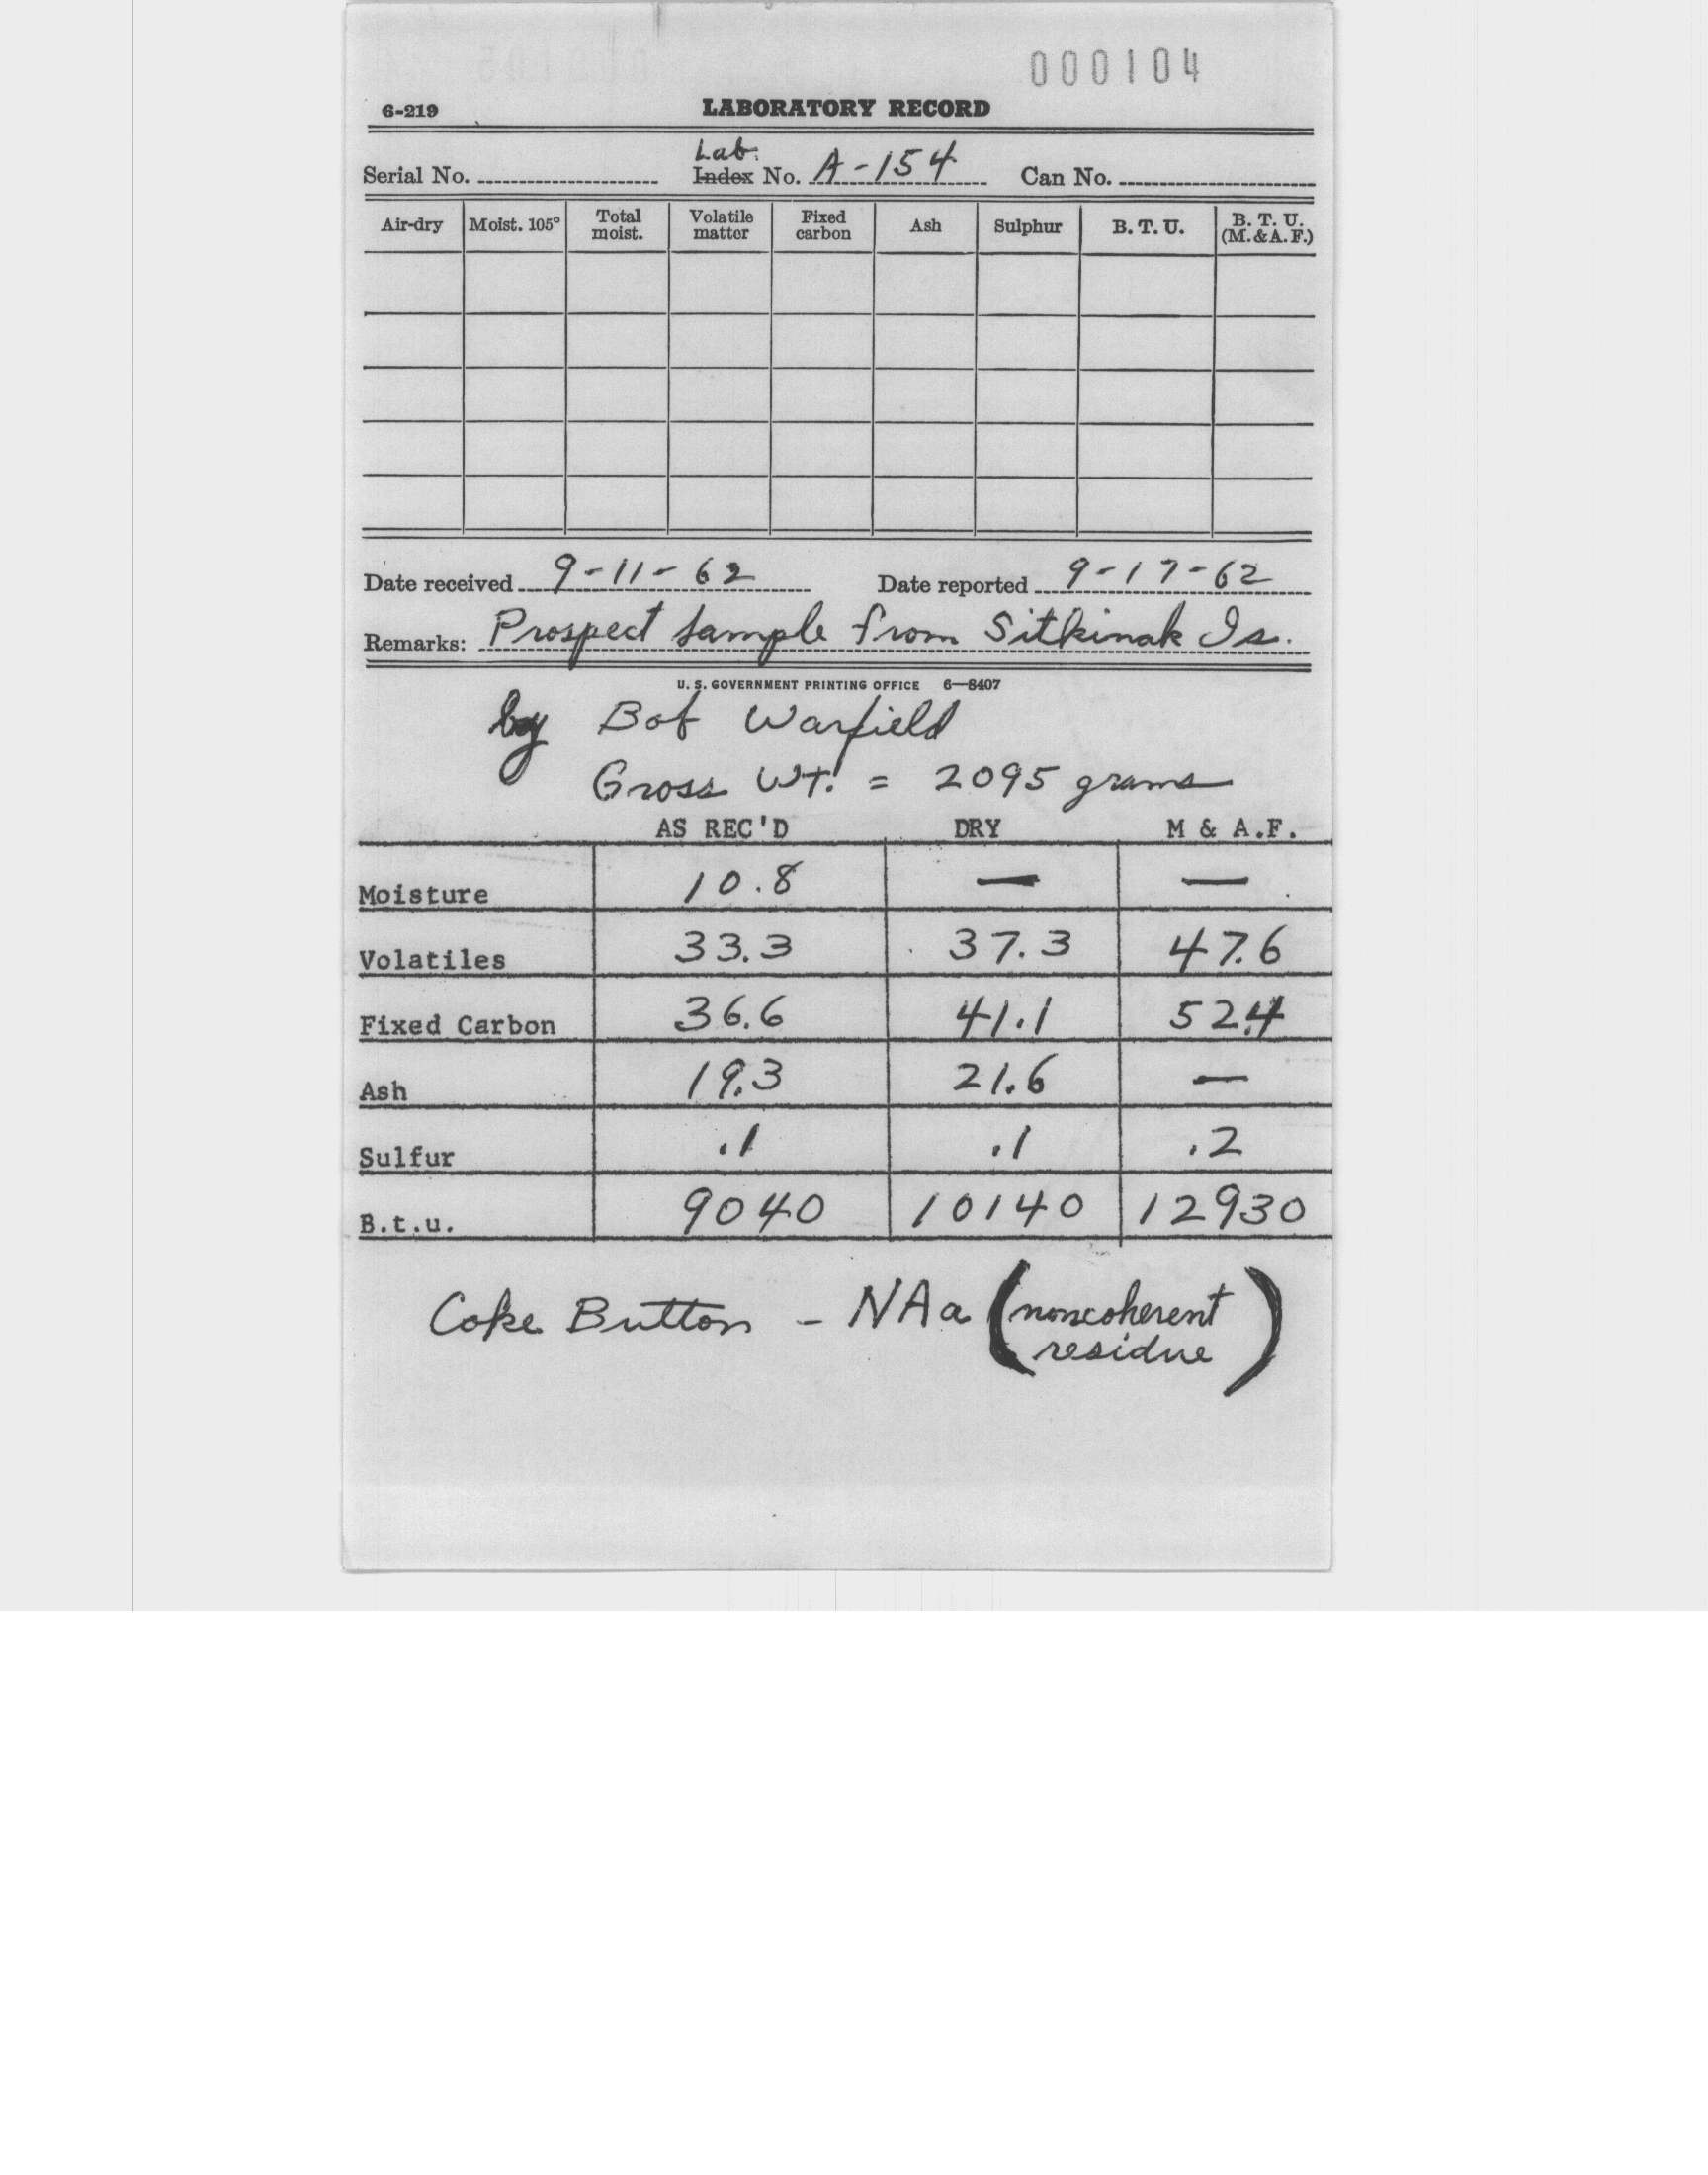 000104
6-219 LABORATORY RECORD
Lab.
Serial No. Index No. A-154 Can No.
Air-dry Moist. 105° Total moist. Volatile matter Fixed carbon Ash Sulphur B. T. U. B. T. U. (M.&A.F.)
Date received 9-11-62 Date reported 9-17-62
Remarks: Prospect sample from Sitkinak Is.
U. S. GOVERNMENT PRINTING OFFICE 6—8407
by Bob Warfield
Gross Wt. = 2095 grams
AS REC'D DRY M & A.F.
Moisture 10.8 — —
Volatiles 33.3 37.3 47.6
Fixed Carbon 36.6 41.1 52.4
Ash 19.3 21.6 —
Sulfur .1 .1 .2
B.t.u. 9040 10140 12930
Coke Button - NAa (noncoherent
residue)